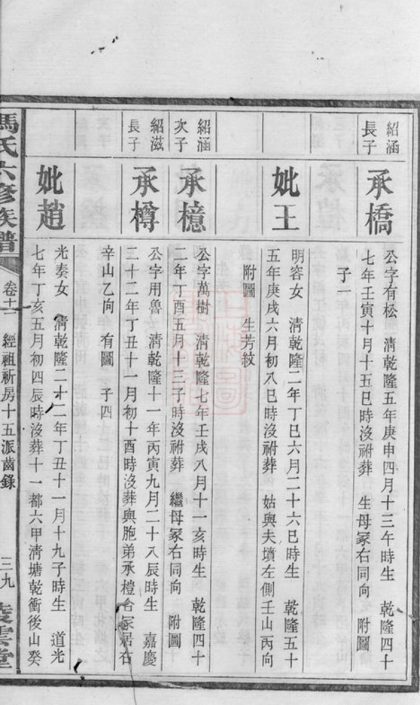 紹涵長子
承橋
公字有松　清乾隆五年庚申四月十三午時生　乾隆四十
七年壬寅十月十五巳時沒祔葬　生母冢右同向　附圖
子一
妣王
明容女　清乾隆二年丁巳六月二十六巳時生　乾隆五十
五年庚戌六月初八巳時沒祔葬　姑與夫墳左側壬山丙向
附圖　生芳紋
紹涵次子
承檍
公字萬樹　清乾隆七年壬戌八月十一亥時生　乾隆四十
二年丁酉五月十三子時沒祔葬　繼母冢右同向　附圖
紹滋長子
承樽
公字用魯　清乾隆十一年丙寅九月二十八辰時生　嘉慶
二十二年丁丑十一月初十酉時沒葬與胞弟承橙合冢居右
辛山乙向　有圖　子四
妣趙
光奏女　清乾隆二十二年丁丑十一月十九子時生　道光
七年丁亥五月初四辰時沒葬十一都六甲清塘乾衝後山癸
馮氏六修族譜
卷十一　經祖祈房十五派齒錄
三九
凌雲堂